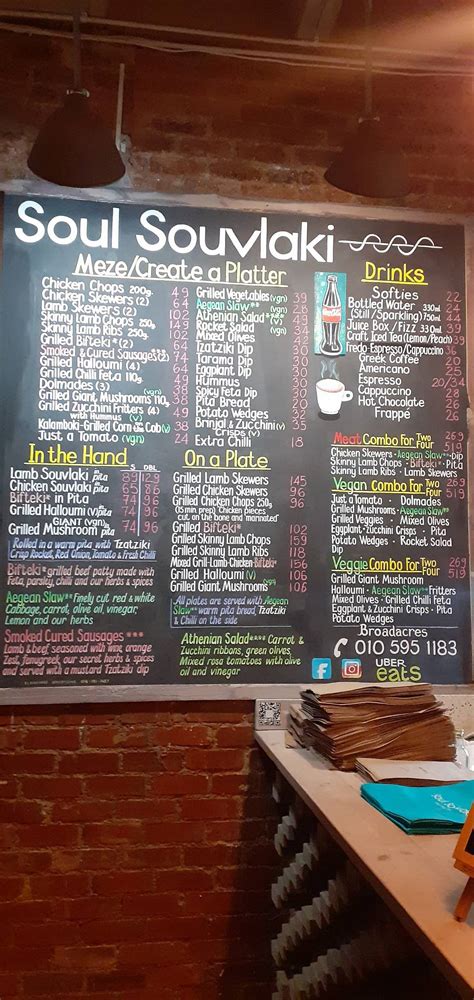 Soul Souvlaki
Meze/Create a Platter
Chicken Chops 200g. 49
Chicken Skewers (2)
Lamb Skewers (2)
Skinny Lamb Chops 250g.
Skinny Lamb Ribs 250g.
Grilled Bifteki* (2)
Smoked & Cured Sausages***
Grilled Halloumi (4)
Grilled Chilli Feta 110g.
Dolmades (3) (vgn)
Grilled Giant Mushrooms 110g.
Grilled Zucchini Fritters (4)
with Hummus (v)
Kalamboki-Grilled Corn on Cob (v)
Just a Tomato (vgn)
Grilled Vegetables (vgn) 39
Aegean Slaw**
Athenian Salad****
Rocket Salad
Mixed Olives
Tzatziki Dip
Tarama Dip
Eggplant Dip
Hummus
Spicy Feta Dip
Pita Bread
Potato Wedges
Brinjal & Zucchini (v)
Crisps
Extra Chilli 18
Drinks
Softies 22
Bottled Water 330ml
(Still / Sparkling) 750ml
Juice Box / Fizz 330ml
Craft Iced Tea (Lemon/Peach)
Fredo-Espresso/Cappuccino 36
Greek Coffee
Americano
Espresso 20/24
Cappuccino
Hot Chocolate
Frappé 26
Meat Combo For Two 269
Four 519
Chicken Skewers - Aegean Slaw** - Dip
Skinny Lamb Chops - Bifteki* - Pita
Skinny Lamb Ribs - Lamb Skewers
Vegan Combo For Two 269
Four 519
Just a Tomato - Dolmades
Grilled Mushrooms - Aegean Slaw**
Grilled Veggies - Mixed Olives
Eggplant - Zucchini Crisps - Pita
Potato Wedges - Rocket Salad
Dip
Veggie Combo For Two 269
Four 519
Grilled Giant Mushroom
Halloumi - Aegean Slaw** - Fritters
Mixed Olives - Grilled Chilli Feta
Eggplant & Zucchini Crisps - Pita
Potato Wedges - Dip
In the Hand
S. DBL.
Lamb Souvlaki in pita 89 129
Chicken Souvlaki in pita 85
Bifteki* in Pita 74 96
Grilled Halloumi (v) in pita 74 96
GIANT (vgn)
Grilled Mushroom in pita 74 96
Rolled in a warm pita with Tzatziki
Crisp Rocket, Red Onion, Tomato & Fresh Chilli
Bifteki* grilled beef patty made with
Feta, parsley, chilli and our herbs & spices
Aegean Slaw** Finely cut red & white
Cabbage, carrot, olive oil, vinegar,
Lemon and our herbs
Smoked Cured Sausages***
Lamb & beef seasoned with wine, orange
Zest, fenugreek, our secret herbs & spices
and served with a mustard Tzatziki dip
On a Plate
Grilled Lamb Skewers 145
Grilled Chicken Skewers 96
Grilled Chicken Chops 250g. 96
(15 min prep) Chicken pieces
cut on the bone and marinated
Grilled Bifteki 102
Grilled Skinny Lamb Chops 159
Grilled Skinny Lamb Ribs 118
Mixed Grill-Lamb-Chicken-Bifteki* 156
Grilled Halloumi (v) 106
Grilled Giant Mushrooms 106
All plates are served with Aegean
Slaw** warm pita bread, Tzatziki
& Chilli on the side
Athenian Salad**** Carrot &
Zucchini ribbons, green olives,
Mixed rosa tomatoes with olive
oil and vinegar
Broadacres
010 595 1183
UBER
eats